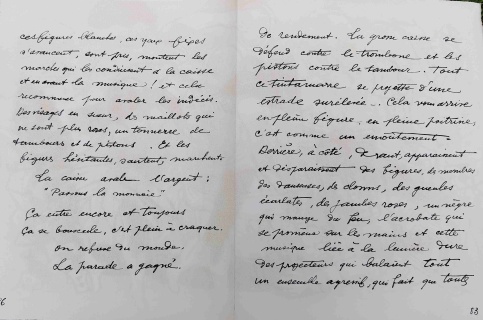 ces figures blanches, ces yeux fixes
s'avancent, sont pris, montent les
marches qui les conduisent à la caisse
et en avant la musique ! et cela
recommence pour avaler les indécis.
Des visages en sueur, des maillots qui
ne sont plus roses, un tonnerre de
tambours et de pistons. Et les
figures hésitantes, sautent, marchent
La caisse avale l'argent :
"Passons la monnaie"
Ça entre encore et toujours
Ça se bouscule, c'est plein à craquer.
on refuse du monde.
La parade a gagné.
86
de rendement. La grosse caisse se
défend contre le trombone et les
pistons contre le tambour. Tout
ce tintamarre se projette d'une
estrade surélevée. Cela vous arrive
en pleine figure, en pleine poitrine,
c'est comme un envoûtement
Derrière, à côté, devant, apparaissent
et disparaissent des figures, des membres
des danseuses, des clowns, des gueules
écarlates, des jambes roses, un nègre
qui mange du feu, l'acrobate qui
se promène sur les mains et cette
musique liée à la lumière dure
des projecteurs qui balaient tout
un ensemble agressif, qui fait que toute
88